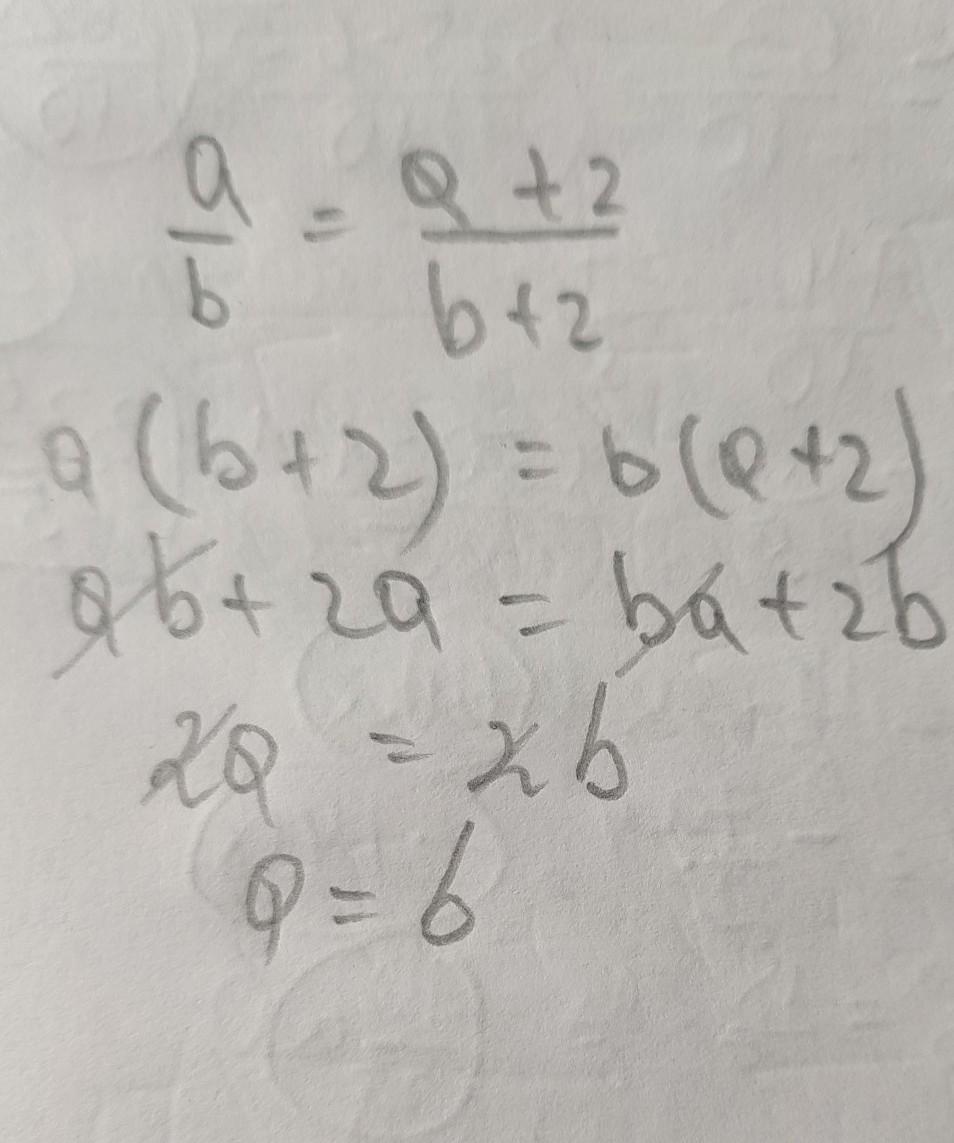 a/b = a + 2/b + 2
a (b + 2) = b (a + 2)
ab + 2a = ba + 2b
2a = 2b
a = b